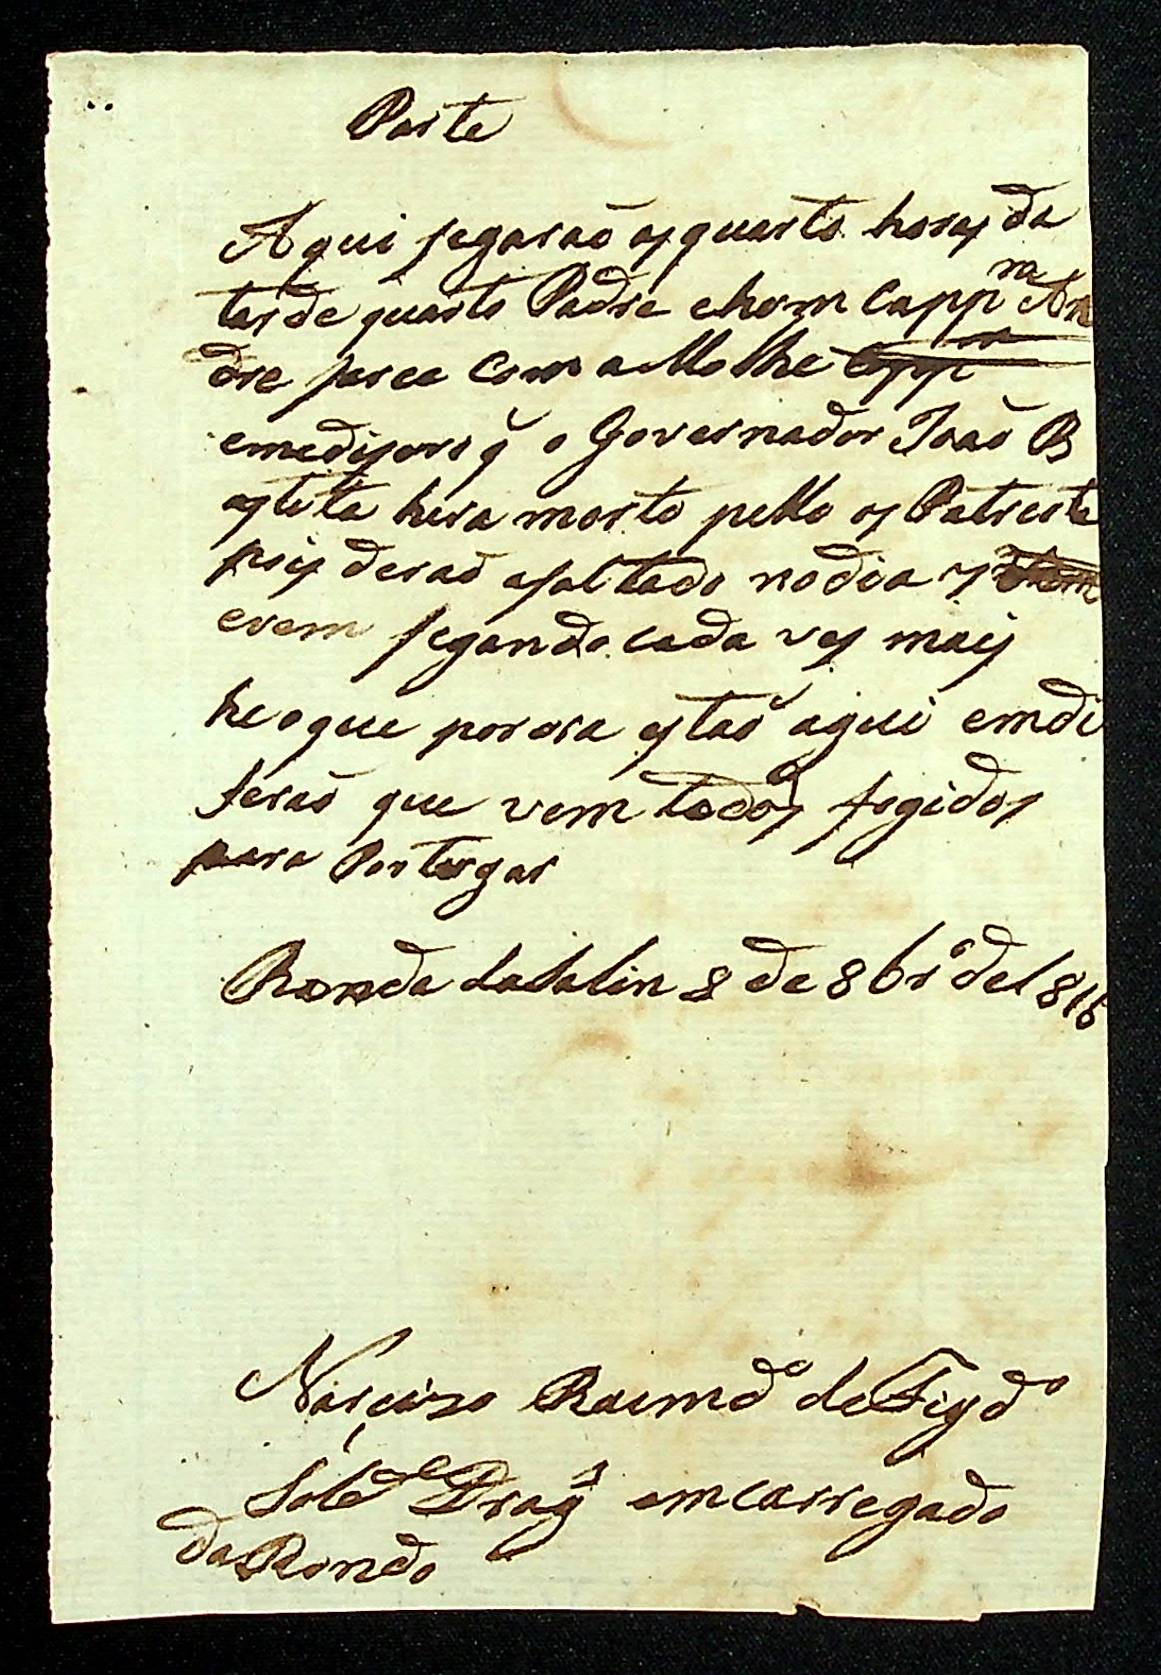 Parte
Aqui segarão as quarto horas da
tarde quarto Padre e hom Capp.ra An
dre com a Molhe
emediserõ q̃ o Governador João B
astita hera morto pello os Patriota
pois derão asaltado no dia 7
e vem segando cada ves mais
he o que por ora estão aqui em di
serão que vem todos fogidos
para Portugar
Ronda da 8 de 8br.o de 1816
Narcizo Raimd.o de Figd.o
Sold.e Drag.s emcarregado
da Ronda